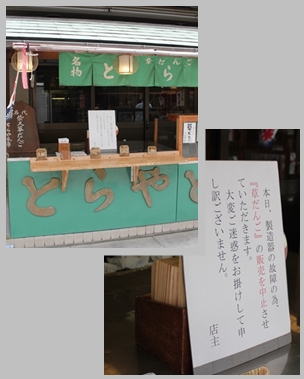 名物
草だんご
とら
とらやと
本日、製造器の故障の為、
『草だんご』の販売を中止させ
ていただきます。
大変ご迷惑をお掛けして申
し訳ございません。
店主